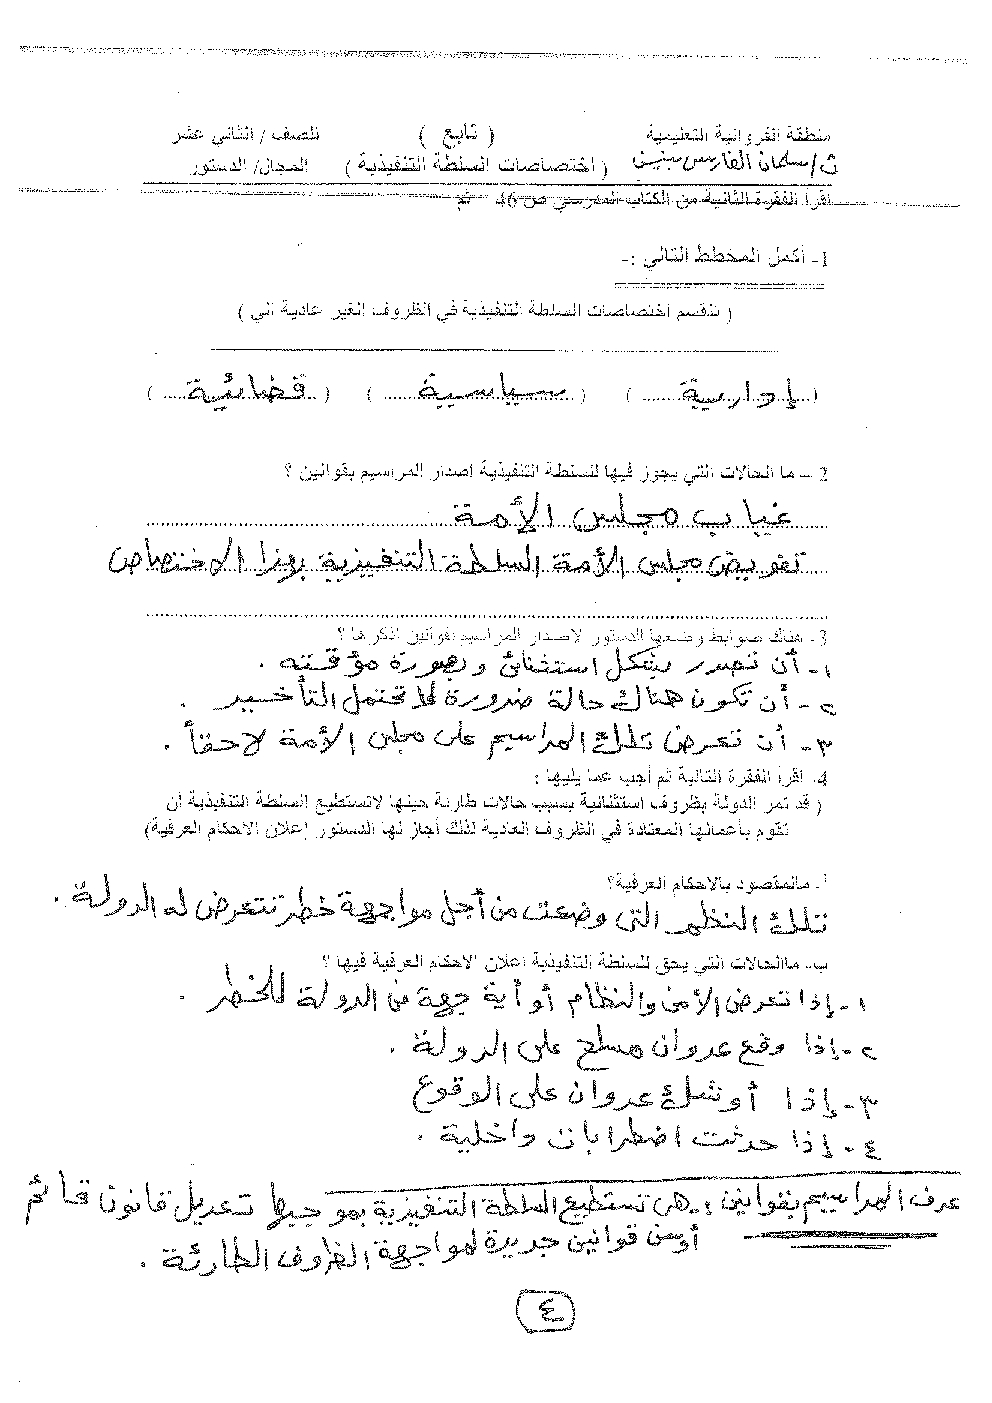 منطقة الفروانية التعليمية ( تابع ) للصف / الثاني عشر
ث/سلمان الفارسي بنين ( اختصاصات السلطة التنفيذية ) المجال/ الدستور
اقرأ الفقرة الثانية من الكتاب المدرسي ص 46 ثم
1- أكمل المخطط التالي :-
( تنقسم اختصاصات السلطة التنفيذية في الظروف الغير عادية الى )
( إدارية ) ( سياسية ) ( قضائية )
2 – ما الحالات التي يجوز فيها للسلطة التنفيذية اصدار المراسيم بقوانين ؟
غياب مجلس الأمة
تفويض مجلس الأمة السلطة التنفيذية بهذا الاختصاص
3- هناك ضوابط وضعها الدستور لاصدار المراسيم بقوانين اذكرها ؟
١- أن تصدر بشكل استثنائي وبصورة مؤقته .
٢- أن تكون هناك حالة ضرورة لا تحتمل التأخير .
٣- أن تعرض تلك المراسيم على مجلس الأمة لاحقاً .
4- اقرأ الفقرة التالية ثم أجب عما يليها :
( قد تمر الدولة بظروف استثنائية بسبب حالات طارئة حينها لاتستطيع السلطة التنفيذية ان
تقوم بأعمالها المعتادة في الظروف العادية لذلك أجاز لها الدستور إعلان الاحكام العرفية)
أ- مالمقصود بالاحكام العرفية؟
تلك النظم التي وضعت من أجل مواجهة خطر تتعرض له الدولة .
ب- ماالحالات التي يحق للسلطة التنفيذية اعلان الاحكام العرفية فيها ؟
١- إذا تعرض الأمن والنظام أو أية جهة من الدولة للخطر .
٢- إذا وقع عدوان مسلح على الدولة .
٣- إذا أوشك عدوان على الوقوع
٤- إذا حدثت اضطرابات داخلية .
عرف المراسيم بقوانين :- هي تستطيع السلطة التنفيذية بموجبها تعديل قانون قائم
أو سن قوانين جديدة لمواجهة الظروف الطارئة .
٤